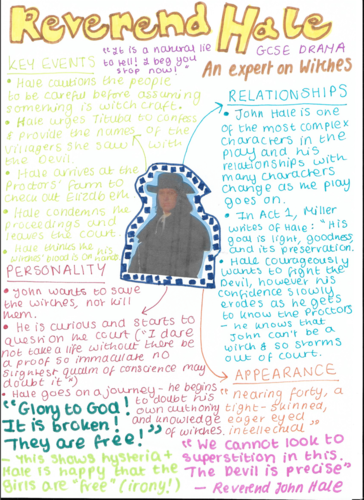 Reverend Hale
"It is a natural lie
to tell! I beg you
stop now!"
GCSE DRAMA
An expert on Witches
KEY EVENTS
• Hale cautions the people
to be careful before assuming
something is witchcraft.
• Hale urges Tituba to confess
& provide the names of the
villagers she saw with
the Devil.
• Hale arrives at the
Proctors' farm to
check out Elizabeth
• Hale condemns the
proceedings and
leaves the court.
• Hale thinks the
witches' blood is on his
hands.
RELATIONSHIPS
• John Hale is one
of the most complex
characters in the
play and his
relationships with
many characters
change as the play
goes on.
• In Act 1, Miller
writes of Hale: "His
goal is light, goodness
and its preservation.
• Hale courageously
wants to fight the
Devil, however his
confidence slowly
erodes as he gets
to know the Proctors
- he knows that
John can't be a
witch & so storms
out of court.
PERSONALITY
• John wants to save
the witches, not kill
them.
• He is curious and starts to
question the court ("I dare
not take a life without there be
a proof so immaculate no
slightest qualm of conscience may
doubt it")
• Hale goes on a journey - he begins
to doubt his
own authority
and knowledge
of witches.
APPEARANCE
"nearing forty, a
tight-skinned,
eager eyed
intellectual"
"Glory to God!
It is broken!
They are free!"
- This shows hysteria +
Hale is happy that the
girls are "free" (irony!)
"We cannot look to
superstition in this.
The Devil is precise"
- Reverend John Hale